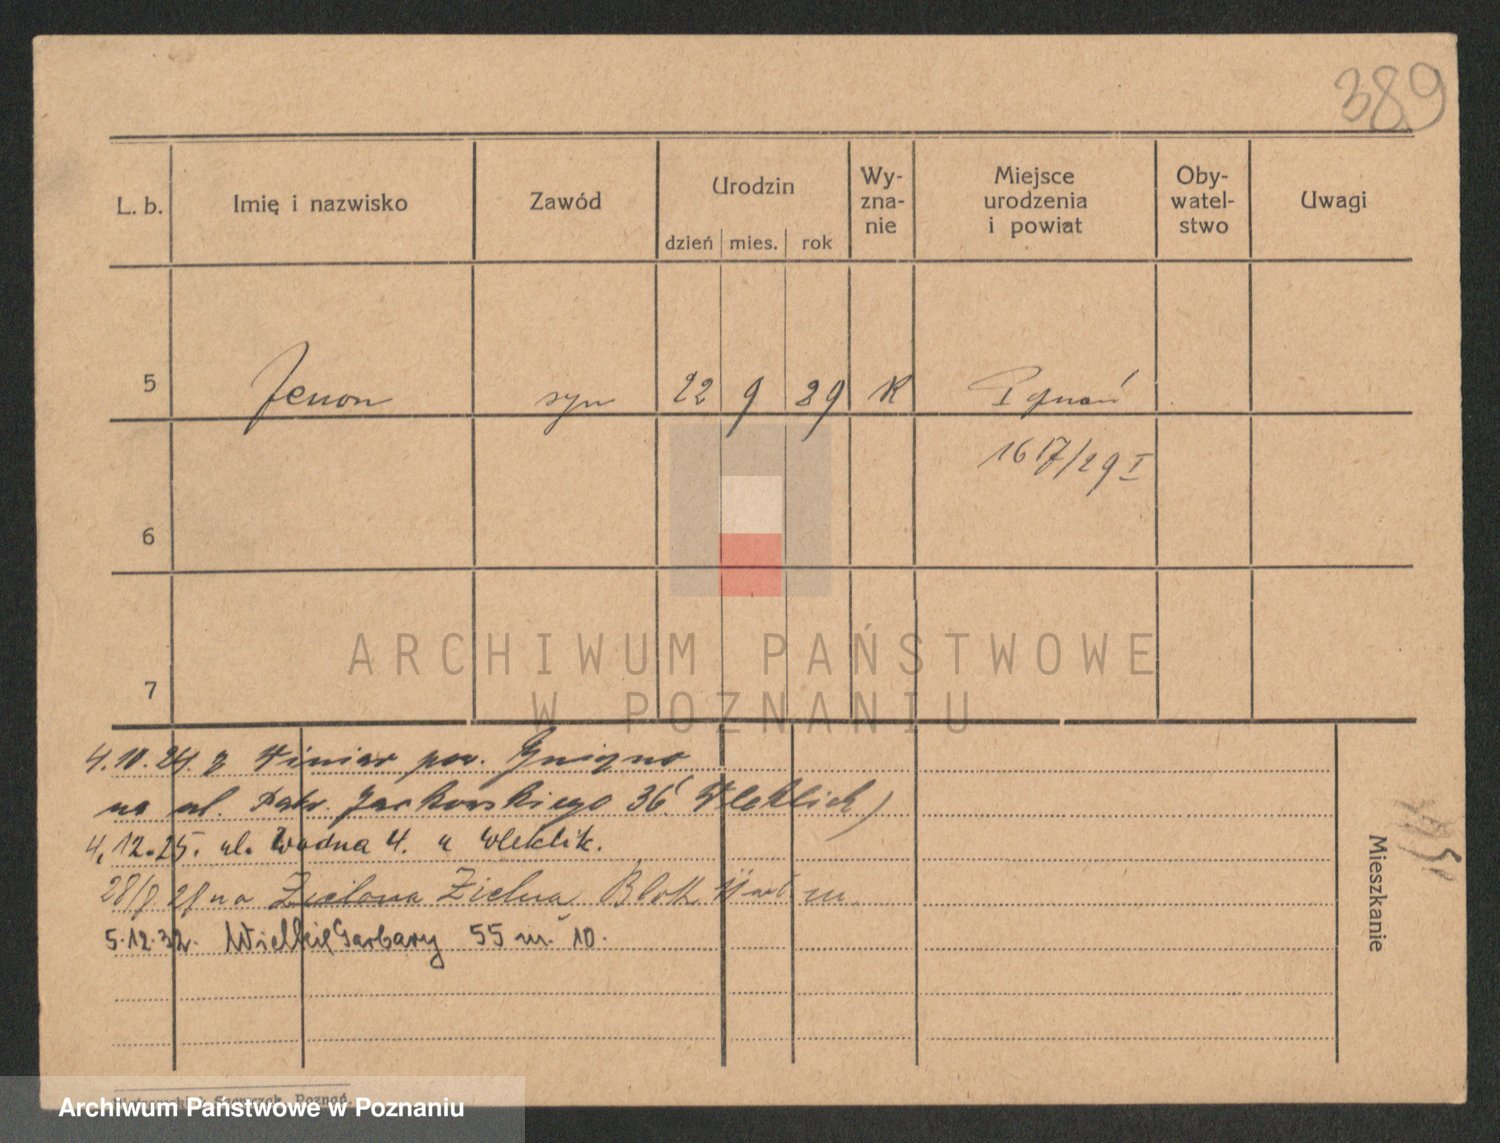 389
L. b. Imię i nazwisko Zawód Urodzin Wy-zna-nie Miejsce urodzenia i powiat Oby-watel-stwo Uwagi
dzień mies. rok
5 Zenon syn 22 9 29 K Poznań
1617/29 I
6
7
ARCHIWUM PAŃSTWOWE
W POZNANIU
4.10.24. z pow. Gniezno
na ul. Patr. Jackowskiego 36
4.12.25. ul. Wodna 4. u Wleklik.
na Zielona Zielna Blok
5.12.32. Wielkie Garbary 55 m. 10.
Mieszkanie
Poznań.
Archiwum Państwowe w Poznaniu